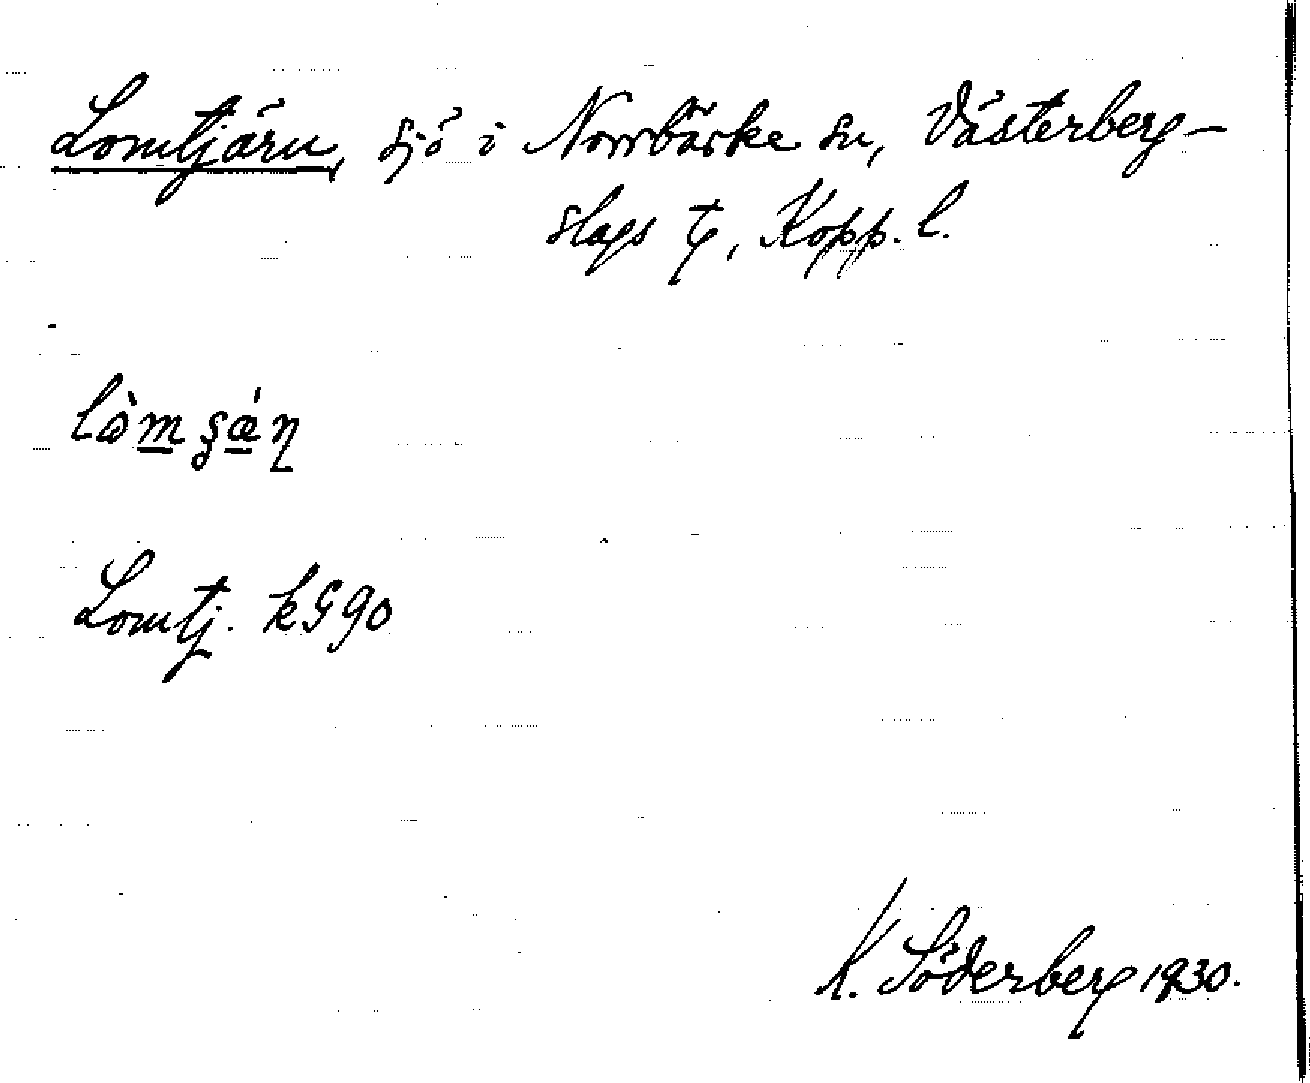 Lomtjärn, sjö i Norrbärke sn, Västerberg-
slags tg, Kopp. l.
Lomtj. kG 90
K. Söderberg 1930.